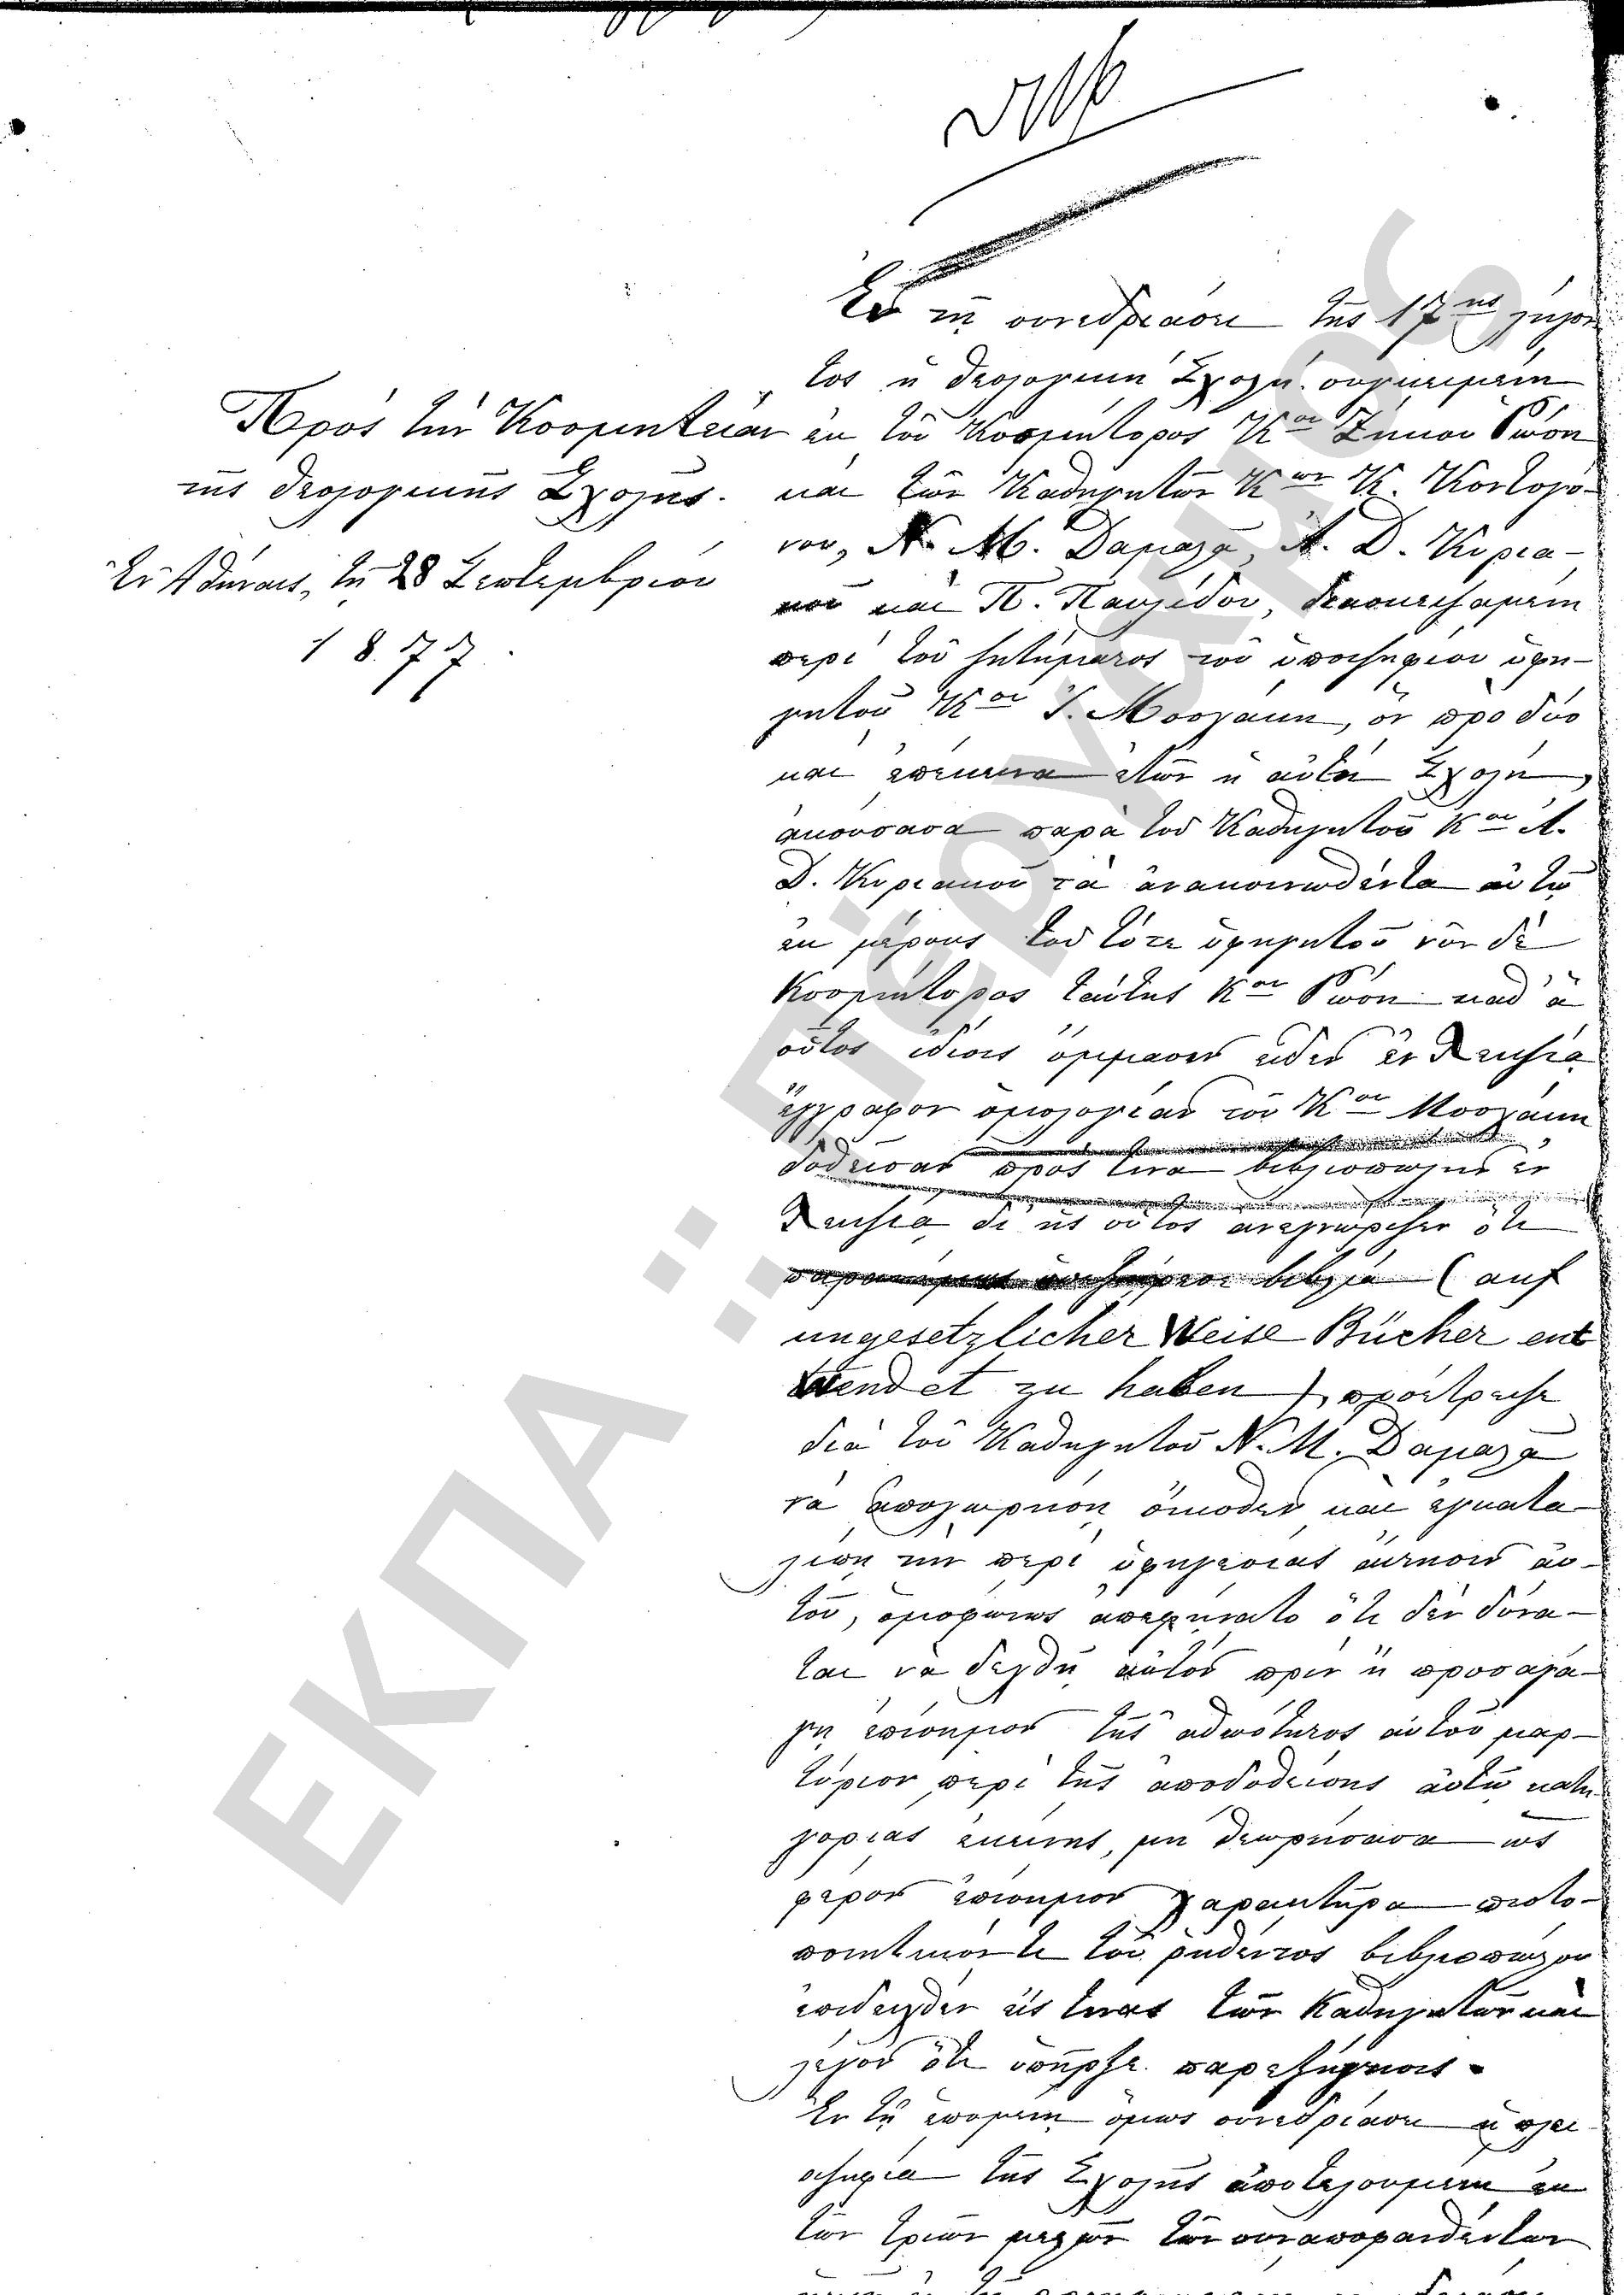 Πρὸς τὴν Κοσμητείαν
τῆς Θεολογικῆς Σχολῆς.
Ἐν Ἀθήναις, τῇ 28 Σεπτεμβρίου
1877.
Ἐν τῇ συνεδριάσει τῆς 17ης λήγον
τος ἡ Θεολογικὴ Σχολὴ συγκειμένη
ἐκ τοῦ Κοσμήτορος Κου Ζήκου Ῥώση
καὶ τῶν Καθηγητῶν Κων Κ. Κοντογό-
νου, Ν. Μ. Δαμαλᾶ, Α. Δ. Κυρια-
κοῦ καὶ Π. Παυλίδου, διασκεψαμένη
περὶ τοῦ ζητήματος τοῦ ὑποψηφίου ὑφη-
γητοῦ Κου Ι. Μοσχάκη, ὃν πρὸ δύο
καὶ ἐπέκεινα ἐτῶν ἡ αὐτὴ Σχολή,
ἀκούσασα παρὰ τοῦ Καθηγητοῦ Κου Α.
Δ. Κυριακοῦ τὰ ἀνακοινωθέντα αὐτῷ
ἐκ μέρους τοῦ τότε ὑφηγητοῦ νῦν δὲ
Κοσμήτορος ταύτης Κου Ῥώση καθ' ἃ
οὗτος ἰδίοις ὄμμασιν εἶδεν ἐν Λειψίᾳ
ἔγγραφον ὁμολογίαν τοῦ Κου Μοσχάκη
δοθεῖσαν πρός τινα βιβλιοπώλην ἐν
Λειψίᾳ δι' ἧς οὗτος ἀνεγνώριζεν ὅτι
βιβλία (auf
ungesetzlicher Weise Bücher ent
wendet zu haben), προέτρεψε
διὰ τοῦ Καθηγητοῦ Ν. Μ. Δαμαλᾶ
νὰ ἀποχωρήσῃ οἴκοθεν καὶ ἐγκατα-
λίπῃ τὴν περὶ ὑφηγεσίας αἴτησιν αὐ-
τοῦ, ὁμοφώνως ἀπεφήνατο ὅτι δὲν δύνα-
ται νὰ δεχθῇ αὐτὸν πρὶν ἢ προσαγά-
γῃ ἐπίσημον τῆς ἀθωότητος αὐτοῦ μαρ-
τύριον περὶ τῆς ἀποδοθείσης αὐτῷ κατη
γορίας ἐκείνης, μὴ θεωρήσασα ὡς
φέρον ἐπίσημον χαρακτῆρα πιστο-
ποιητικόν τι τοῦ ῥηθέντος βιβλιοπώλου
ἐπιδειχθὲν εἴς τινας τῶν Καθηγητῶν καὶ
λέγον ὅτι ὑπῆρξε παρεξήγησις.
Ἐν τῇ ἑπομένῃ ὅμως συνεδριάσει ἡ πλει
οψηφία τῆς Σχολῆς ἀποτελουμένη ἐκ
τῶν τριῶν μελῶν τῶν συναποφανθέντων
ΕΚΠΑ